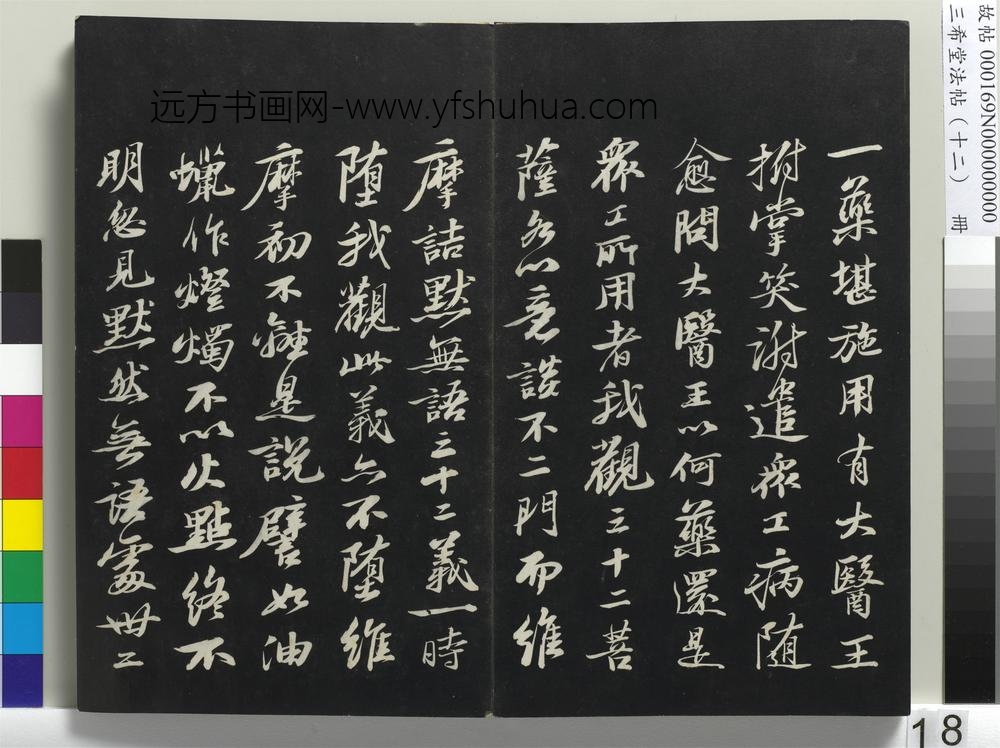 一藥堪施用有大醫王
拊掌笑謝遣眾工病随
愈問大醫王以何藥還是
眾工所用者我觀三十二菩
薩各以意談不二門而維
摩詰默無語三十二義一時
堕我觀此義亦不堕維
摩初不離是說譬如油
蠟作燈燭不以火點終不
明忽見默然無語處卅二
远方书画网-www.yfshuhua.com
故帖 000169N000000000
三希堂法帖(十二) 冊
18